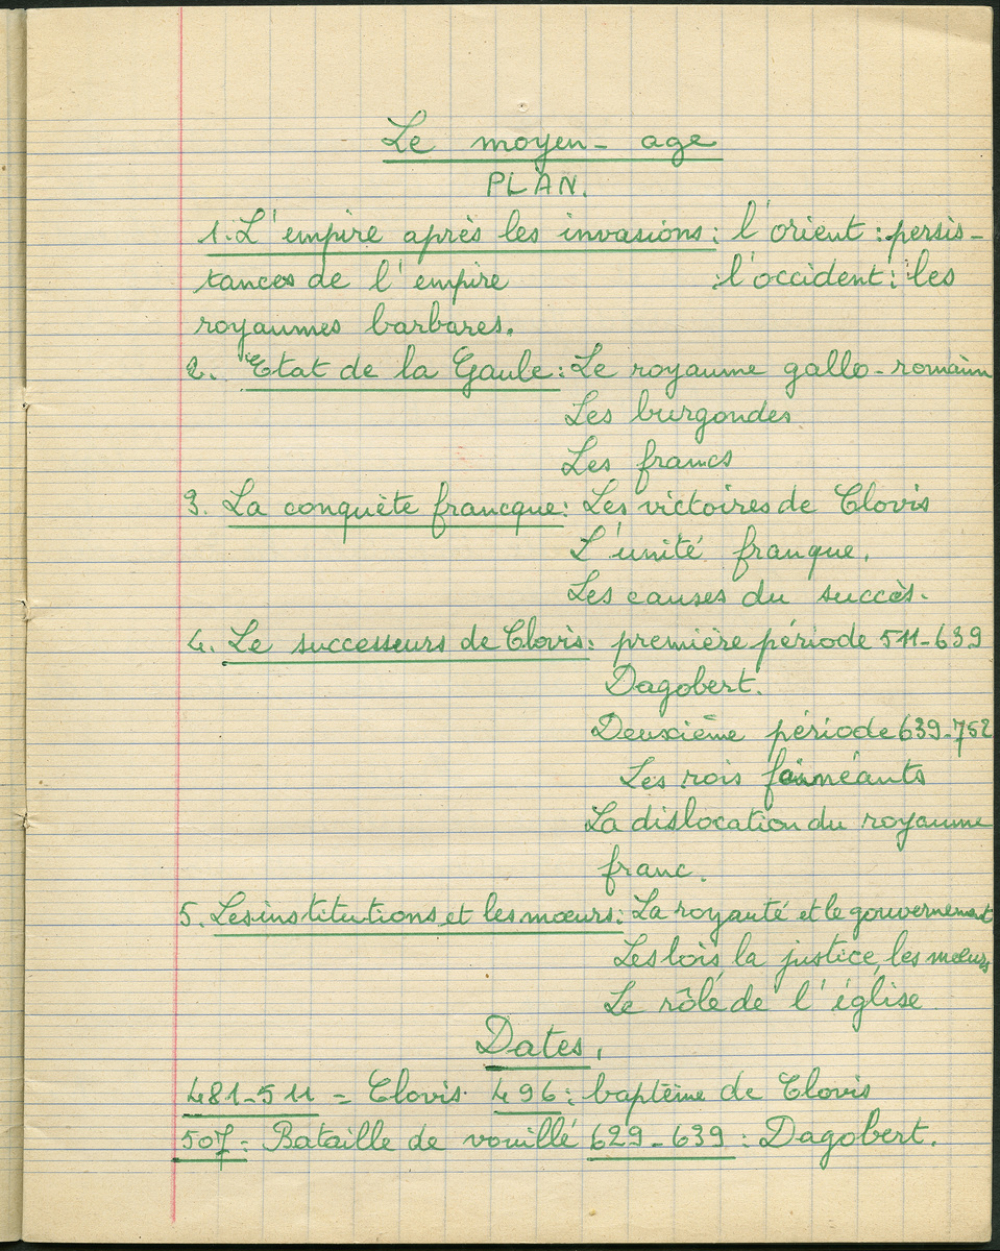 Le moyen-age
PLAN.
1. L'empire après les invasions : l'orient : persis-
tances de l'empire l'occident : les
royaumes barbares.
2. Etat de la Gaule : Le royaume gallo-romain
Les burgondes
Les francs
3. La conquète francque : Les victoires de Clovis
L'unité franque.
Les causes du succès.
4. Le successeurs de Clovis : première période 511-639
Dagobert.
Deuxième période 639-752
Les rois fainéants
La dislocation du royaume
franc.
5. Les institutions et les mœurs : La royauté et le gouvernement
Les lois la justice, les mœurs
Le rôle de l'église
Dates.
481-511 = Clovis. 496 : baptème de Clovis
507 : Bataille de vouillé 629-639 : Dagobert.